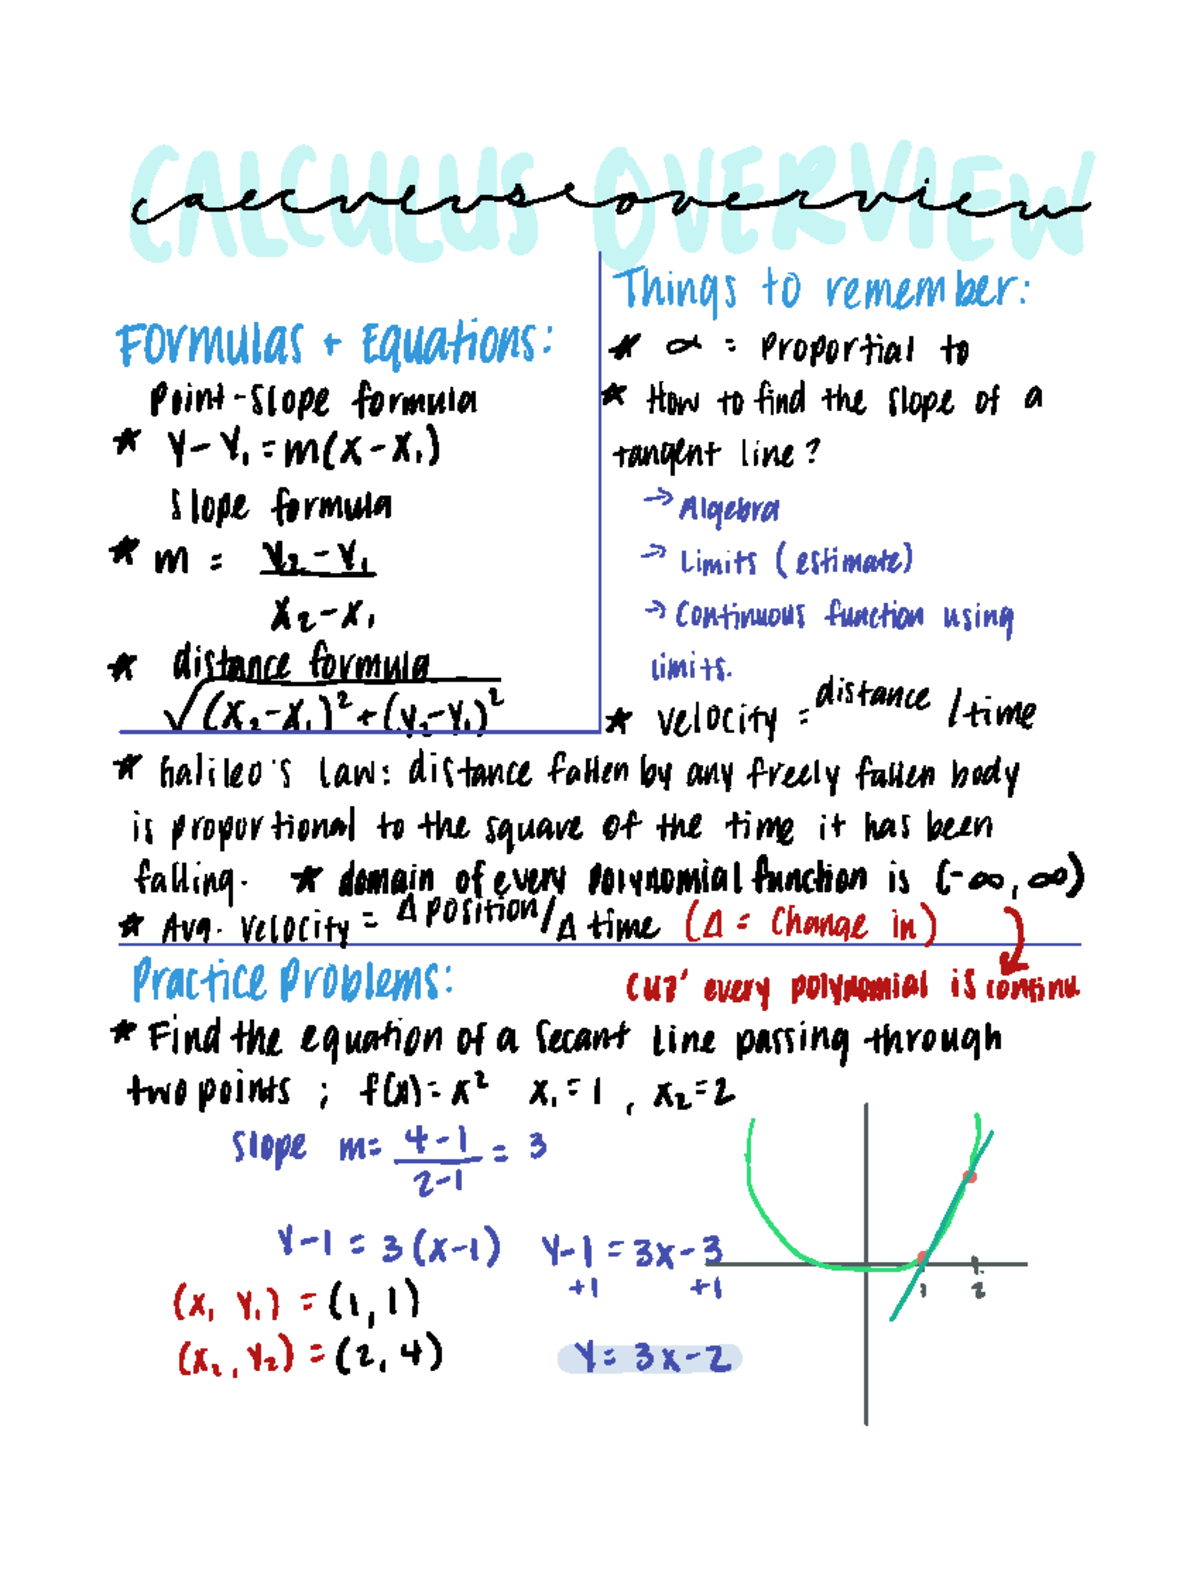 CALCULUS OVERVIEW
calculus overview
Formulas + Equations:
Point-Slope formula
* Y-Y₁=m(X-X₁)
Slope formula
* m = Y₂-Y₁
X₂-X₁
* distance formula
√(X₂-X₁)²+(Y₂-Y₁)²
Things to remember:
* ∝ = Proportial to
* How to find the slope of a
tangent line?
→ Algebra
→ Limits (estimate)
→ Continuous function using
limits.
* velocity = distance /time
* Galileo's Law: distance fallen by any freely fallen body
is proportional to the square of the time it has been
falling. * domain of every polynomial function is (-∞,∞)
* Avg. Velocity = Δ position/Δ time (Δ = Change in)
cuz' every polynomial is continu
Practice Problems:
* Find the equation of a Secant Line passing through
two points ; f(x)=x² x₁=1 , x₂=2
Slope m= 4-1 = 3
2-1
Y-1 = 3(X-1) Y-1 = 3x-3
+1 +1
(X₁ Y₁) = (1,1)
(X₂,Y₂) = (2,4)
Y= 3x-2
1 2